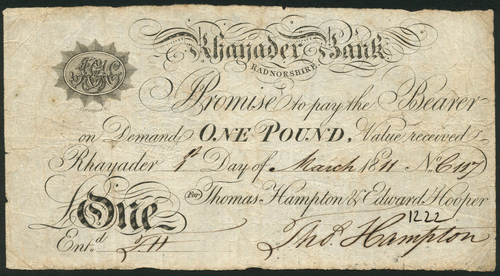 Rhayader Bank
RADNORSHIRE.
I Promise to pay the Bearer
on Demand ONE POUND, Value received
Rhayader 1st Day of March 1811 No.
For Thomas Hampton & Edward Hooper
£One
1222
Ent.d
Tho.s Hampton